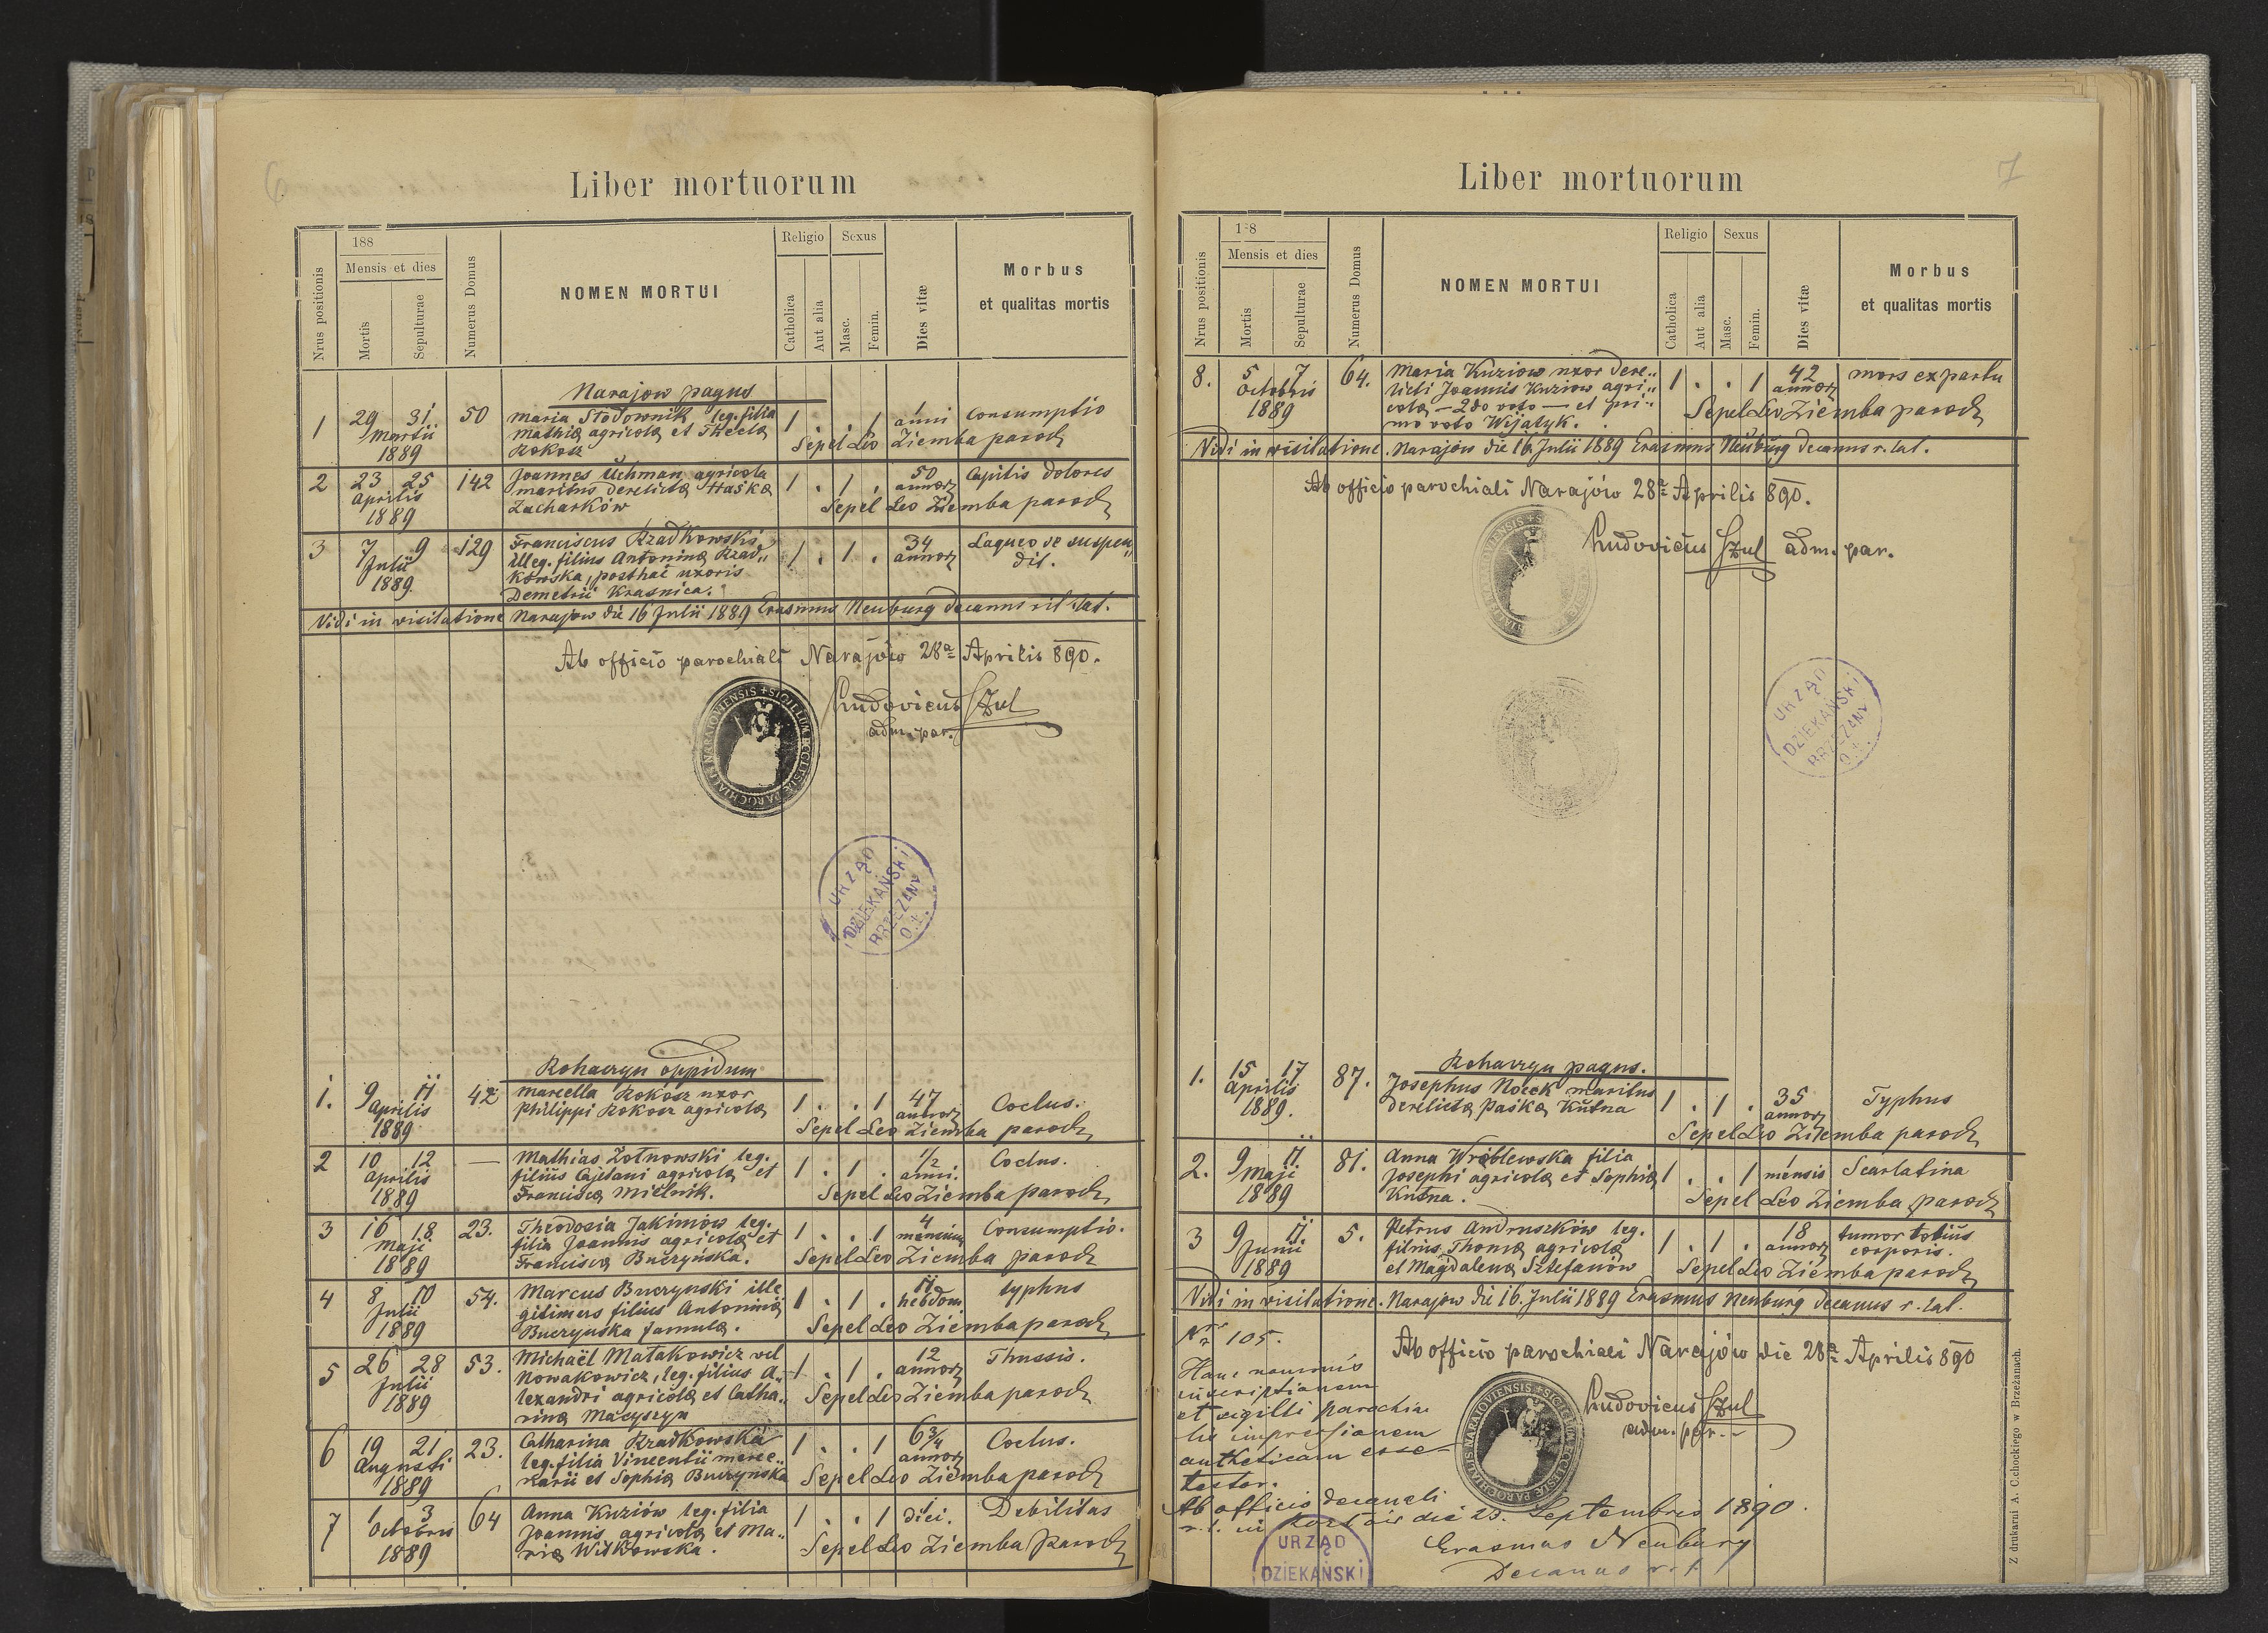 6
Liber mortuorum
Nrus positionis
188
Mensis et dies
Mortis
Sepulturae
Numerus Domus
NOMEN MORTUI
Religio
Catholica
Aut alia
Sexus
Masc.
Femin.
Dies vitæ
Morbus
et qualitas mortis
Narajow pagus
1 29 31 50 Maria Stodownik leg. filia 1 . . 1 1 Consumptio
Martii Mathiæ agricolæ et Theclæ anni
1889 Kokosz Sepel Leo Ziemba paroch
2 23 25 142 Joannes Uchman agricola 1 . 1 . 50 Capitis dolores
Aprilis maritus derelictæ Haskæ annor
1889 Zacharków Sepel Leo Ziemba paroch
3 7 9 129 Franciscus Rzadkowski 1 . 1 . 34 Laqueo se suspen„
Julii illeg. filius Antoninæ Rzad„ annor dit.
1889. kowska, posthac uxoris
Demetrii Krasnica.
Vidi in visitatione Narajow die 16 Julii 1889 Erasmus Neuburg decanus rit. lat.
Ab officio parochiali Narajów 28ª Aprilis 890.
Ludovicus Szul
adm. par.
SIGILLUM ECCLESIÆ PAROCHIALIS NARAJOVIENSIS
URZĄD
DZIEKAŃSKI
BRZEŻANY
Rohaczyn oppidum
1. 9 11 42 Marcella Kokosz uxor 1 . . 1 47 Coctus.
Aprilis Philippi Kokosz agricolæ annor
1889 Sepel Leo Ziemba paroch
2 10 12 — Mathias Żołnowski leg. 1 . 1 . 1/2 Coctus.
Aprilis filius Cajetani agricolæ et anni.
1889 Franciscæ Mielnik. Sepel Leo Ziemba paroch
3 16 18 23. Theodosia Jakimów leg. 1 . . 1 4 Consumptio.
Maji filia Joannis agricolæ et mensium
1889 Franciscæ Buczyńska. Sepel Leo Ziemba paroch
4 8 10 54. Marcus Buczynski ille 1 . 1 . 11 typhus
Julii gitimus filius Antoninæ hebdom
1889 Buczynska famulæ. Sepel Leo Ziemba paroch
5 26 28 53. Michaël Matakowicz vel 1 . 1 . 12 Thussis.
Julii Nowakowicz, leg. filius A„ annor
1889 lexandri agricolæ et Catha„ Sepel Leo Ziemba paroch
rinæ Macyszyn
6 19 21 23. Catharina Rzadkowska 1 . . 1 6 3/4 Coctus.
Augusti leg. filia Vincentii merce„ annor
1889 narii et Sophiæ Buczynska Sepel Leo Ziemba paroch
7 1 3 64 Anna Kuziów leg. filia 1 . . 1 1 Debilitas
Octobris Joannis agricolæ et Ma„ diei.
1889 riæ Witkowska. Sepel Leo Ziemba paroch
7
Liber mortuorum
Nrus positionis
188
Mensis et dies
Mortis
Sepulturae
Numerus Domus
NOMEN MORTUI
Religio
Catholica
Aut alia
Sexus
Masc.
Femin.
Dies vitæ
Morbus
et qualitas mortis
8. 5 7 64. Maria Kuziow uxor dere„ 1 . . 1 42 mors ex partu
Octobris licti Joannis Kuziow agri„ annor
1889 colæ — 2do voto — et pri„ Sepel Leo Ziemba paroch
mo voto Wijatyk.
Vidi in visitatione. Narajów die 16 Julii 1889 Erasmus Neuburg decanus r. lat.
Ab officio parochiali Narajów 28ª Aprilis 890.
Ludovicus Szul adm. par.
URZĄD
DZIEKAŃSKI
BRZEŻANY
Rohaczyn pagus.
1. 15 17 87. Josephus Nocek maritus 1 . 1 . 35 Typhus
Aprilis derelictæ Paskæ Kutna annor
1889. Sepel Leo Ziemba paroch
2. 9 11 81. Anna Wróblewska filia 1 . . 1 1 Scarlatina
Maji Josephi agricolæ et Sophiæ mensis
1889 Kutna. Sepel Leo Ziemba paroch
3 9 11 5. Petrus Andruszków leg. 1 . 1 . 18 tumor totius
Junii filius Thomæ agricolæ annor corporis.
1889 et Magdalenæ Sztefanów Sepel Leo Ziemba paroch
Vidi in visitatione. Narajow die 16. Julii 1889 Erasmus Neuburg decanus r. lat.
Nr 105.
Ab officio parochiali Narajów die 28ª Aprilis 890
Hanc nominis
inscriptionem
et sigilli parochia
lis impressionem
authenticam esse
testor.
Ludovicus Szul
adm. par.
SIGILLUM ECCLESIÆ PAROCHIALIS NARAJOVIENSIS
Ab officio decanali
r. l. in die 23. Septembris 1890.
Erasmus Neuburg
Decanus r. l.
URZĄD
DZIEKAŃSKI
Z drukarni A. Cichockiego w Brzeżanach.